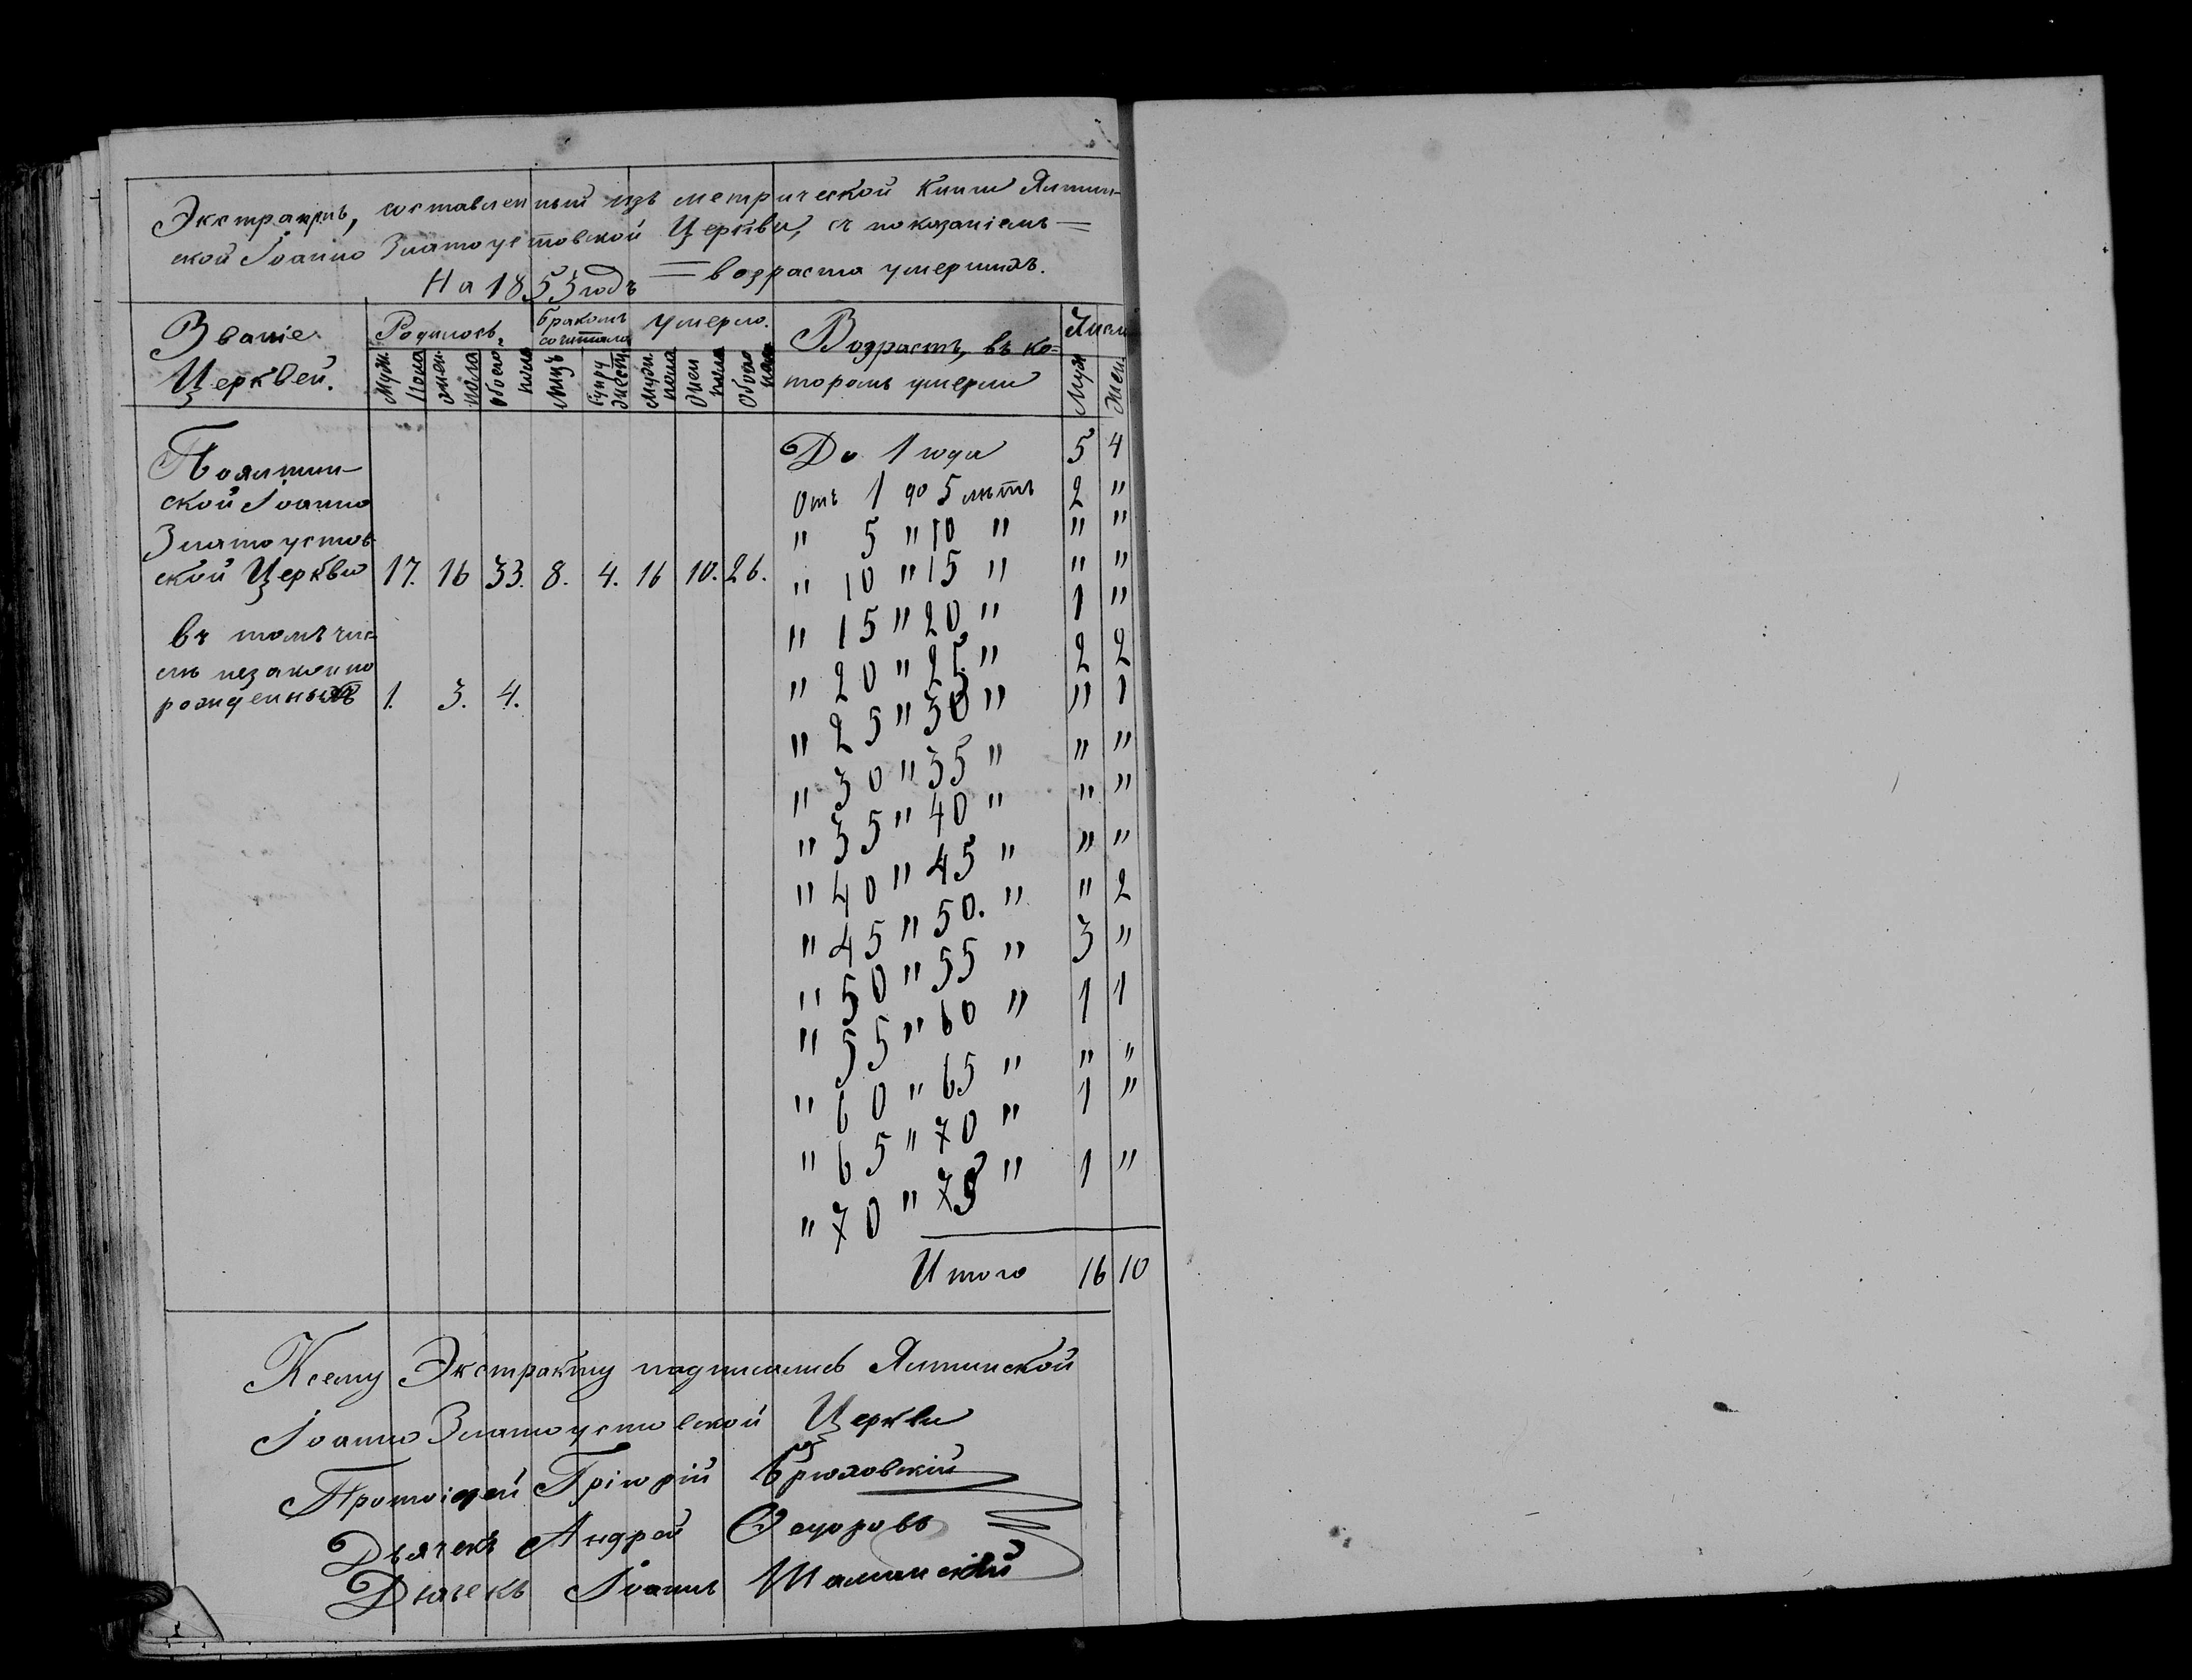 Экстрактъ, составленный изъ метрической книги Ялтин-
ской Іоанно Златоустовской Церкви, съ показаніемъ =
= возраста умершихъ.
На 1853 годъ
Званіе Церквей. | Родилось. | Бракомъ сочитано | Умерло. | Возрастъ, въ ко= | Число
Муж. пола | жен. пола | обоего пола | лицъ | супружеств | Муж. пола | Жен. пола | Обоего пола | торомъ умерли | Муж | Жен
До 1 года 5 4
Поялтин-
ской Іоанно Отъ 1 до 5 лѣтъ 2 "
Златоустов- " 5 " 10 " " "
ской Церкви 17. 16 33. 8. 4. 16 10. 26. " 10 " 15 " " "
въ томъ чис- " 15 " 20 " 1 "
лѣ незаконно " 20 " 25 " 2 2
рожденныхъ 1. 3. 4. " 25 " 30 " " 1
" 30 " 35 " " "
" 35 " 40 " " "
" 40 " 45 " " "
" 45 " 50. " " 2
" 50 " 55 " 3 "
" 55 " 60 " 1 1
" 60 " 65 " " "
" 65 " 70 " 1 "
" 70 " 75 " 1 "
Итого 16 10
Ксему Экстракту подписались Ялтинской
Іоанно Златоустовской Церкви
Протоіерей Григорій Брюховскій
Дьячекъ Андрей Федоровъ
Дьячекъ Іоаннъ